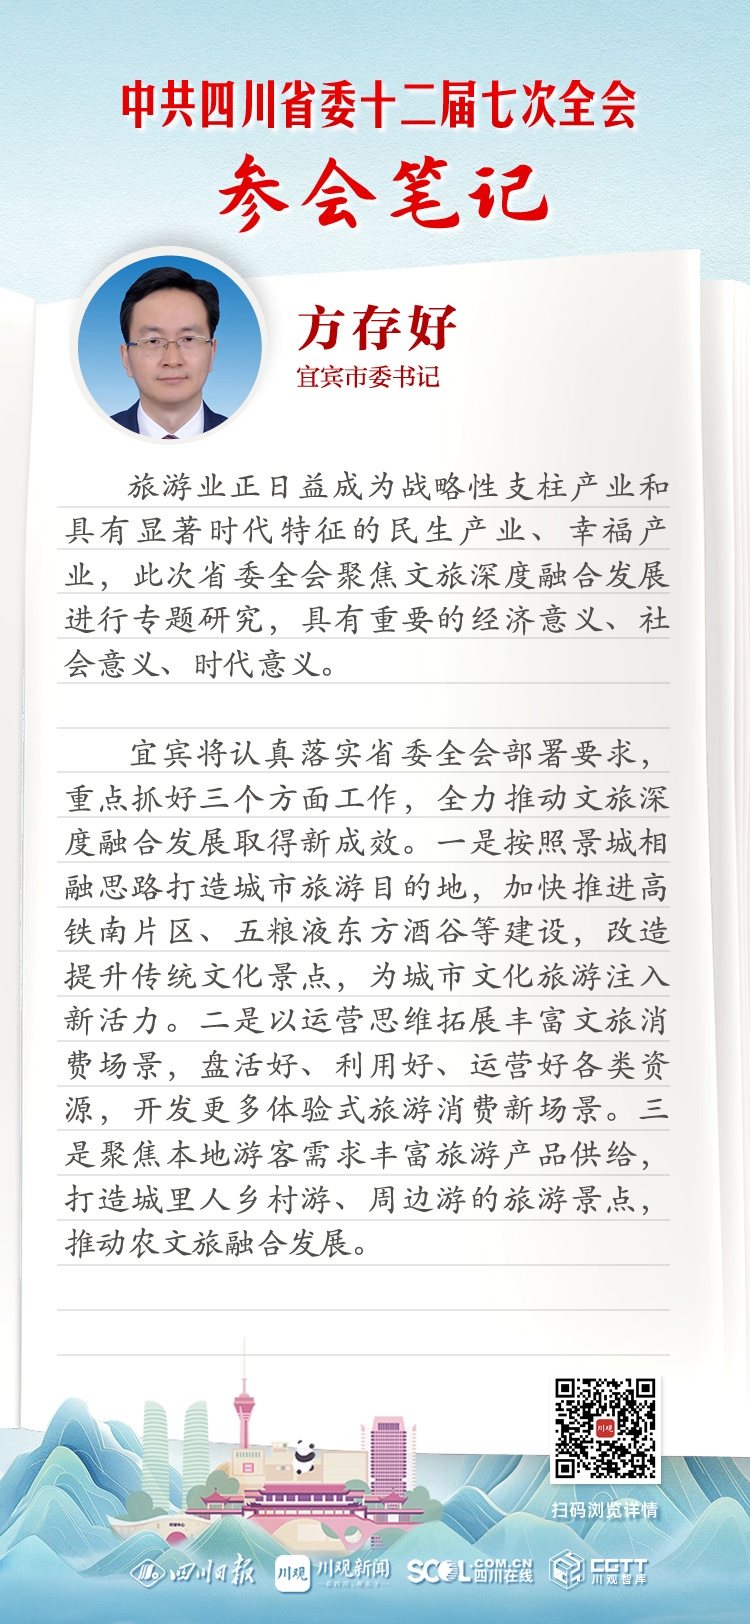 中共四川省委十二届七次全会
参会笔记
方存好
宜宾市委书记
旅游业正日益成为战略性支柱产业和
具有显著时代特征的民生产业、幸福产
业，此次省委全会聚焦文旅深度融合发展
进行专题研究，具有重要的经济意义、社
会意义、时代意义。
宜宾将认真落实省委全会部署要求，
重点抓好三个方面工作，全力推动文旅深
度融合发展取得新成效。一是按照景城相
融思路打造城市旅游目的地，加快推进高
铁南片区、五粮液东方酒谷等建设，改造
提升传统文化景点，为城市文化旅游注入
新活力。二是以运营思维拓展丰富文旅消
费场景，盘活好、利用好、运营好各类资
源，开发更多体验式旅游消费新场景。三
是聚焦本地游客需求丰富旅游产品供给，
打造城里人乡村游、周边游的旅游景点，
推动农文旅融合发展。
川观
扫码浏览详情
四川日报
川观 川观新闻
SCOL.COM.CN
四川在线
CGTT
川观智库